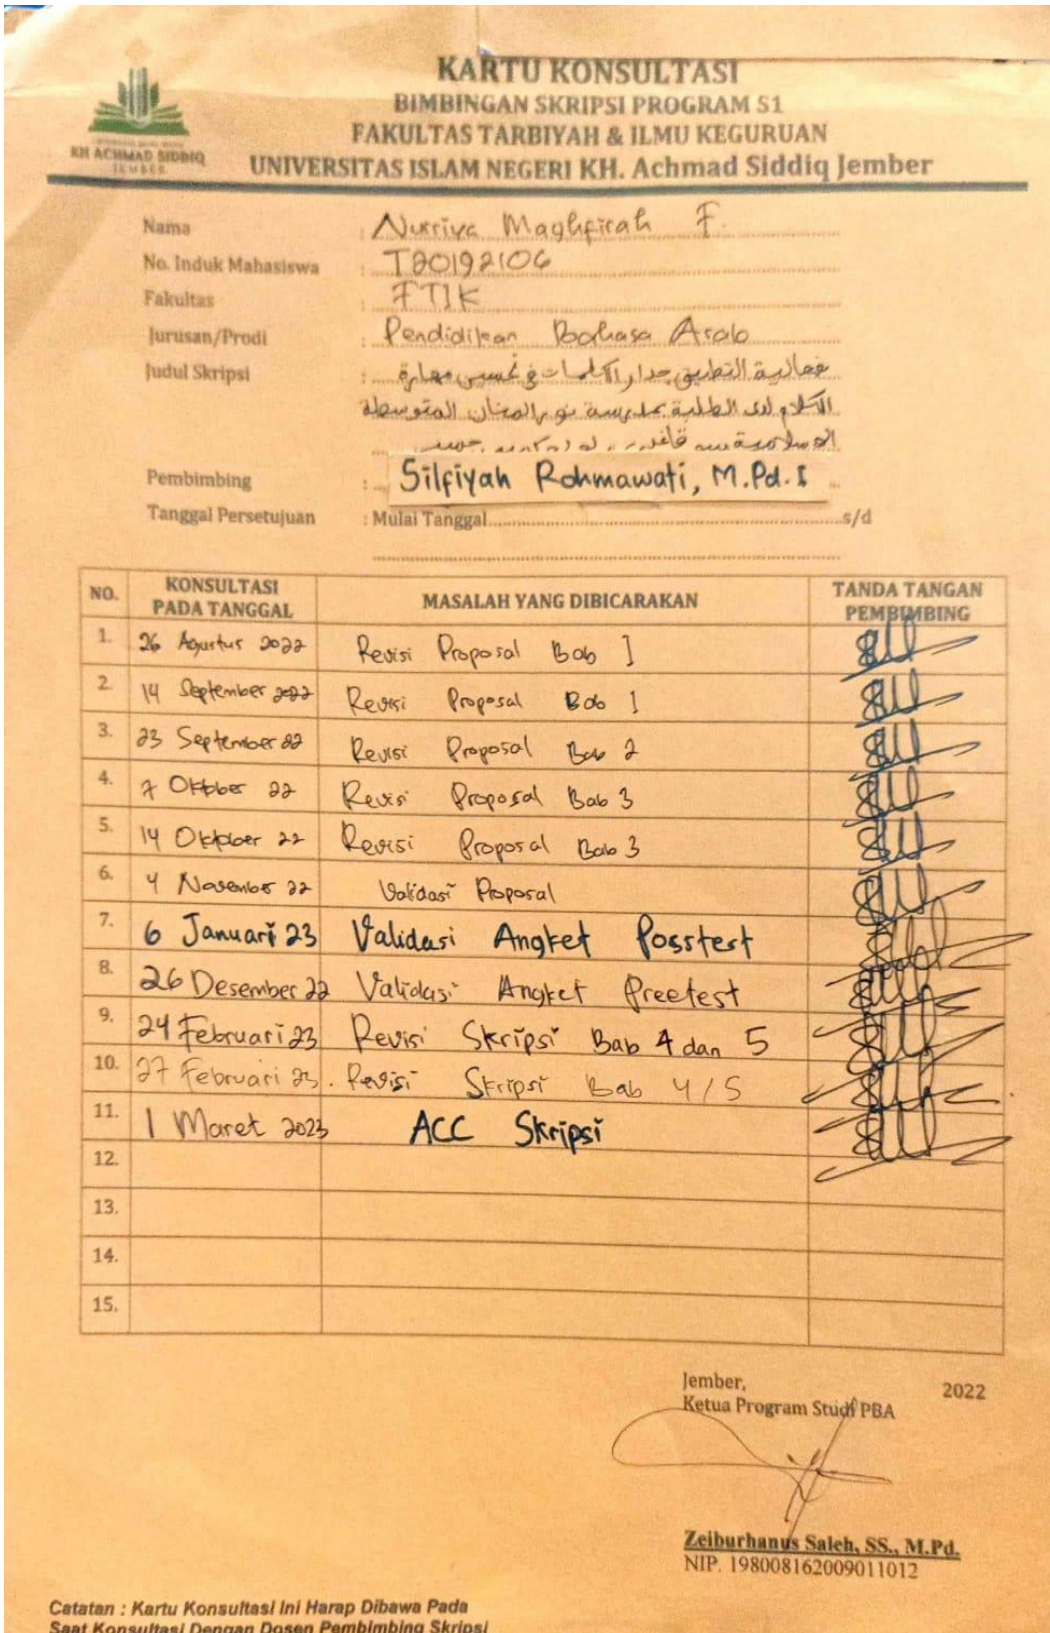 KARTU KONSULTASI
BIMBINGAN SKRIPSI PROGRAM S1
FAKULTAS TARBIYAH & ILMU KEGURUAN
UNIVERSITAS ISLAM NEGERI KH. Achmad Siddiq Jember
KH ACHMAD SIDDIQ
JEMBER
Nama : Nurriya Maghfirah F.
No. Induk Mahasiswa : T20192106
Fakultas : FTIK
Jurusan/Prodi : Pendidikan Bahasa Arab
Judul Skripsi : فعالية التطبيق جدار الكلمات في تحسين مهارة
الكلام لدى الطلبة بمدرسة نور المنان المتوسطة
الإسلامية
Pembimbing : Silfiyah Rohmawati, M.Pd.I
Tanggal Persetujuan : Mulai Tanggal s/d
NO. KONSULTASI PADA TANGGAL MASALAH YANG DIBICARAKAN TANDA TANGAN PEMBIMBING
1. 26 Agustus 2022 Revisi Proposal Bab 1
2. 14 September 2022 Revisi Proposal Bab 1
3. 23 September 22 Revisi Proposal Bab 2
4. 7 Oktober 22 Revisi Proposal Bab 3
5. 14 Oktober 22 Revisi Proposal Bab 3
6. 4 November 22 Validasi Proposal
7. 6 Januari 23 Validasi Angket Posstest
8. 26 Desember 22 Validasi Angket Preetest
9. 24 Februari 23 Revisi Skripsi Bab 4 dan 5
10. 27 Februari 23. Revisi Skripsi Bab 4/5
11. 1 Maret 2023 ACC Skripsi
12.
13.
14.
15.
Jember, 2022
Ketua Program Studi PBA
Zeiburhanus Saleh, SS., M.Pd.
NIP. 198008162009011012
Catatan : Kartu Konsultasi Ini Harap Dibawa Pada
Saat Konsultasi Dengan Dosen Pembimbing Skripsi